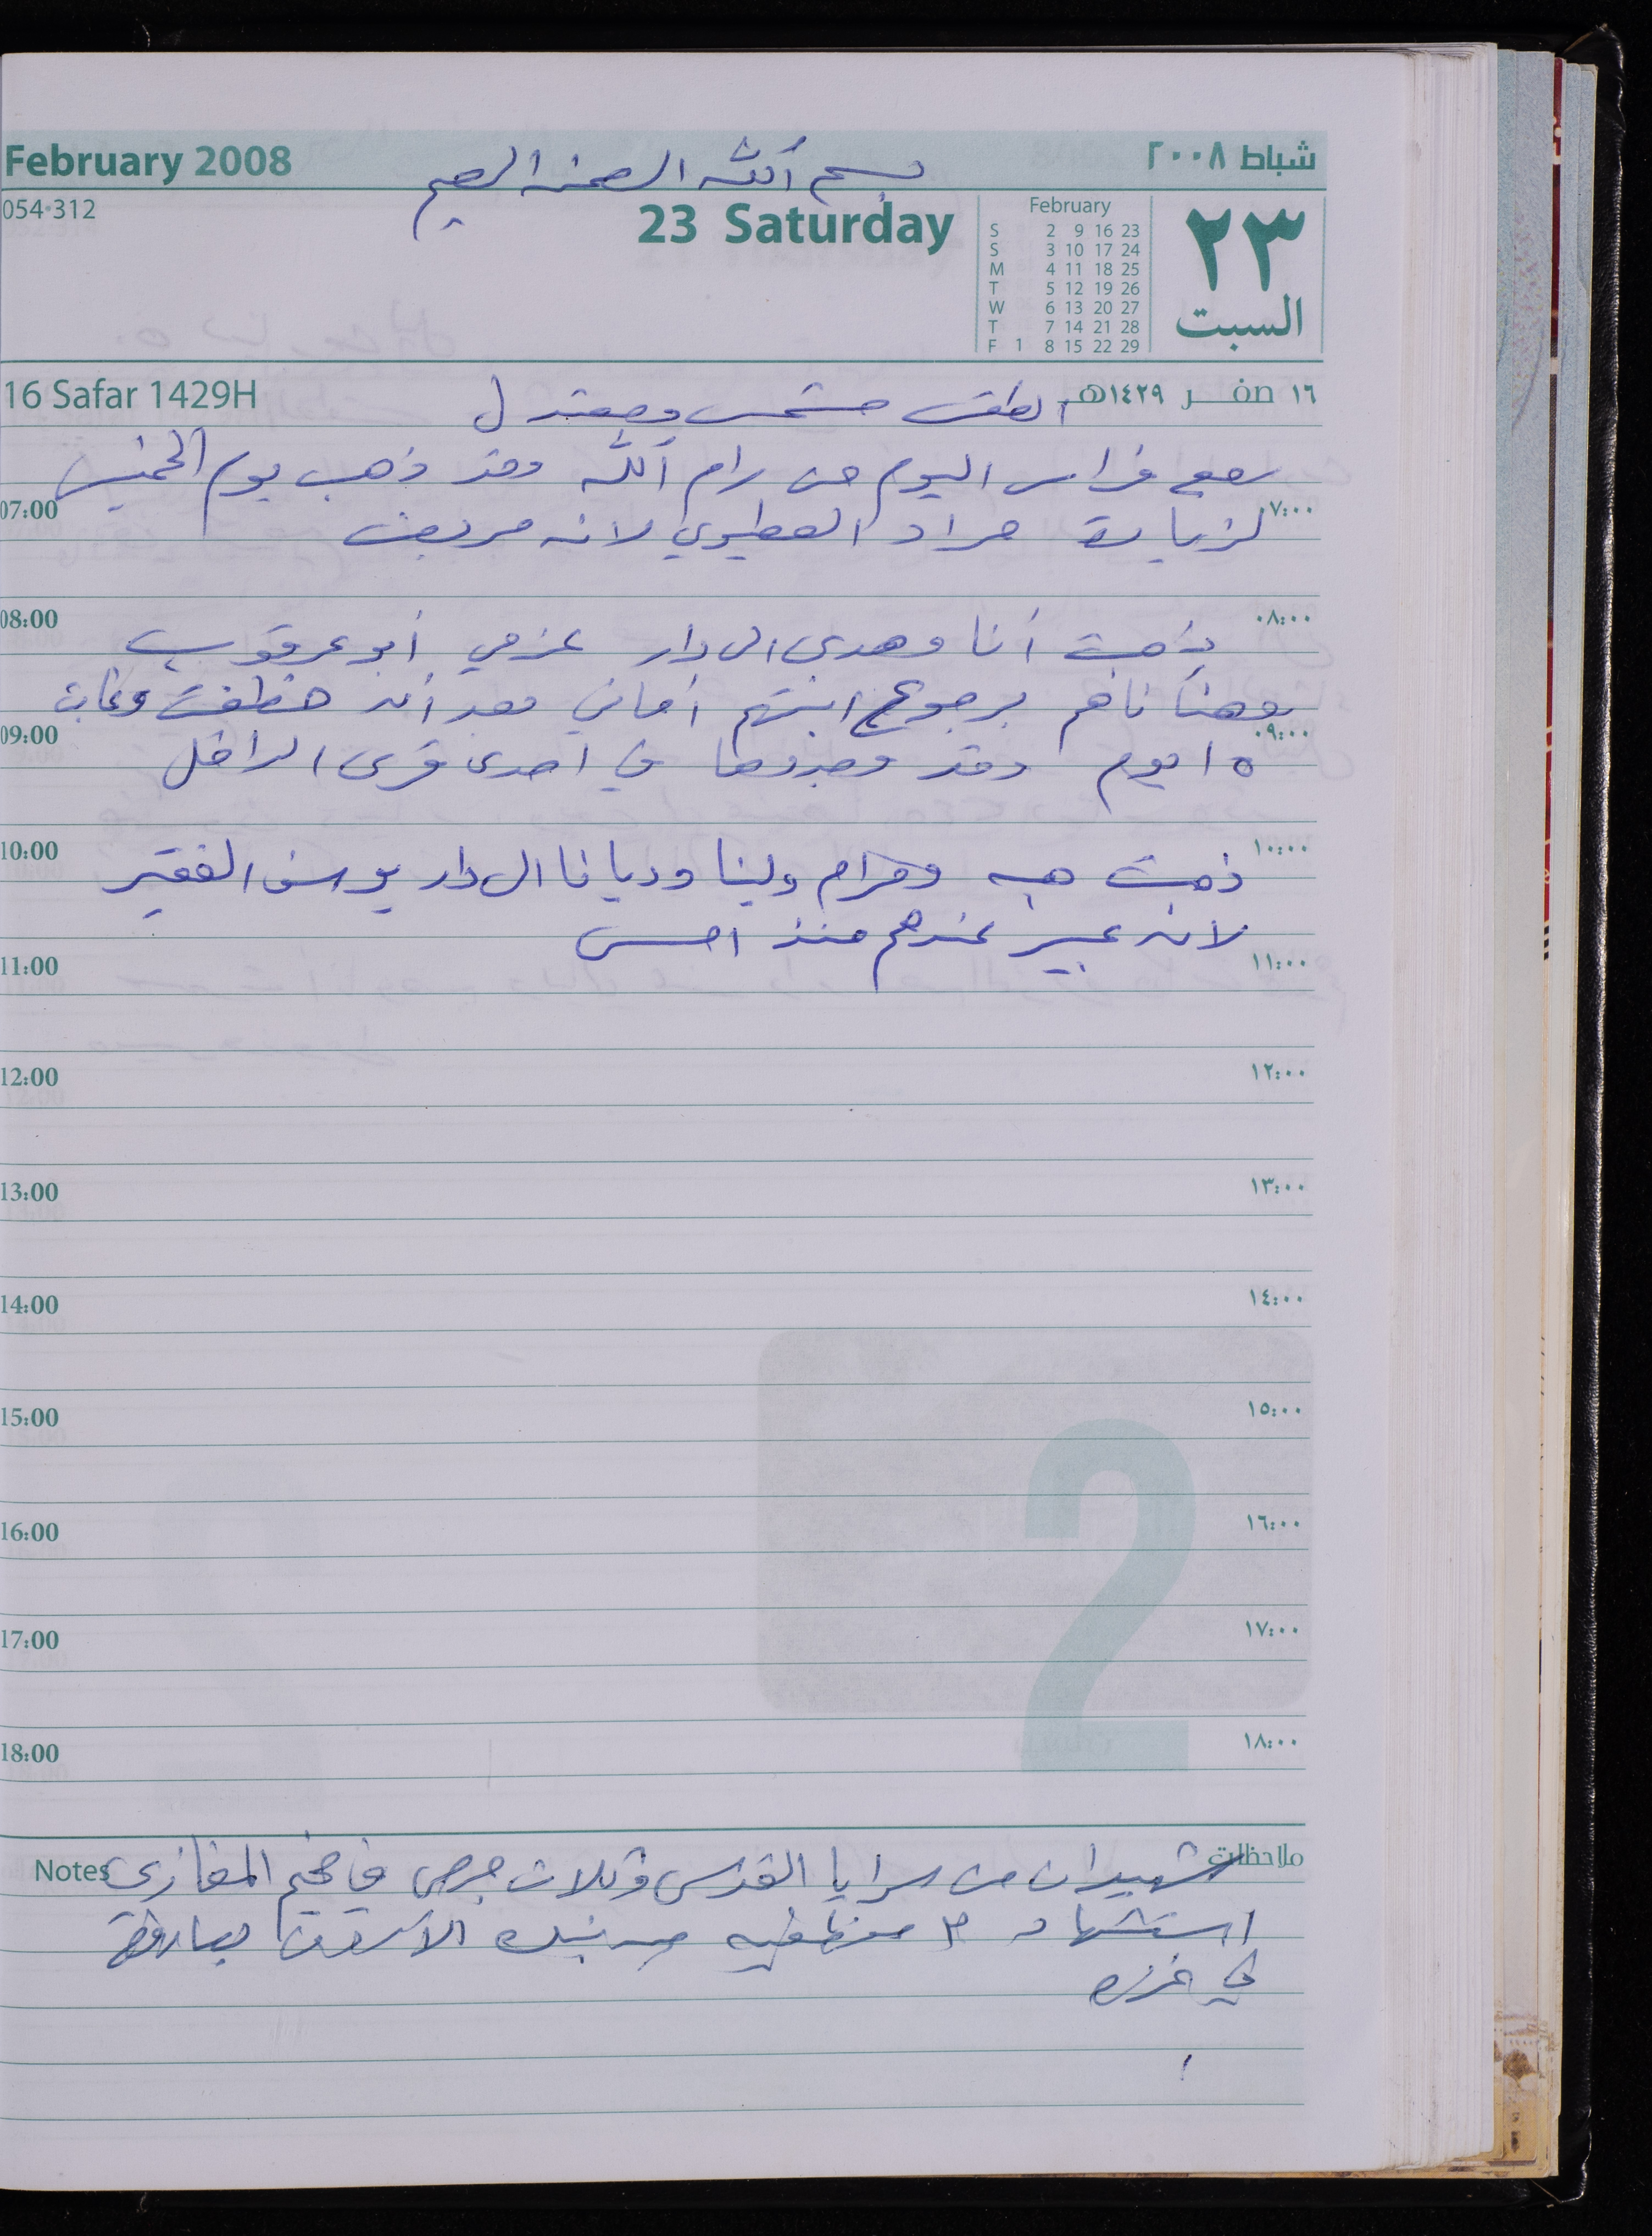 February 2008
بسم الله الرحمن الرحيم
شباط ٢٠٠٨
054-312
23 Saturday
February
S 2 9 16 23
S 3 10 17 24
M 4 11 18 25
T 5 12 19 26
W 6 13 20 27
T 7 14 21 28
F 1 8 15 22 29
٢٣
السبت
16 Safar 1429H
١٦ صفر ١٤٢٩هـ
الطقس مشمس ومعتدل
رجع فراس اليوم من رام الله وقد ذهب يوم الخميس
07:00 ٧:٠٠
لزيارة مراد العطيوي لانه مريض
08:00 ٠٨:٠٠
ذهبت أنا وهدى الى دار عزمي أبو عرقوب
وهنأناهم برجوع ابنتهم أماني بعد أن خطفت وغابت
09:00 ٠٩:٠٠
١٥ يوم وقد وجدوها في احدى قرى الداخل
10:00 ١٠:٠٠
ذهبت هبه ومرام ولينا وديانا الى دار يوسف الفقير
لانه عبير عندهم منذ امس
11:00 ١١:٠٠
12:00 ١٢:٠٠
13:00 ١٣:٠٠
14:00 ١٤:٠٠
15:00 ١٥:٠٠
16:00 ١٦:٠٠
17:00 ١٧:٠٠
18:00 ١٨:٠٠
2
Notes ملاحظات
شهيدان من سرايا القدس وثلاث جرحى في مخيم المغازي
استشهاد ٣ من الأسرة
في غزه